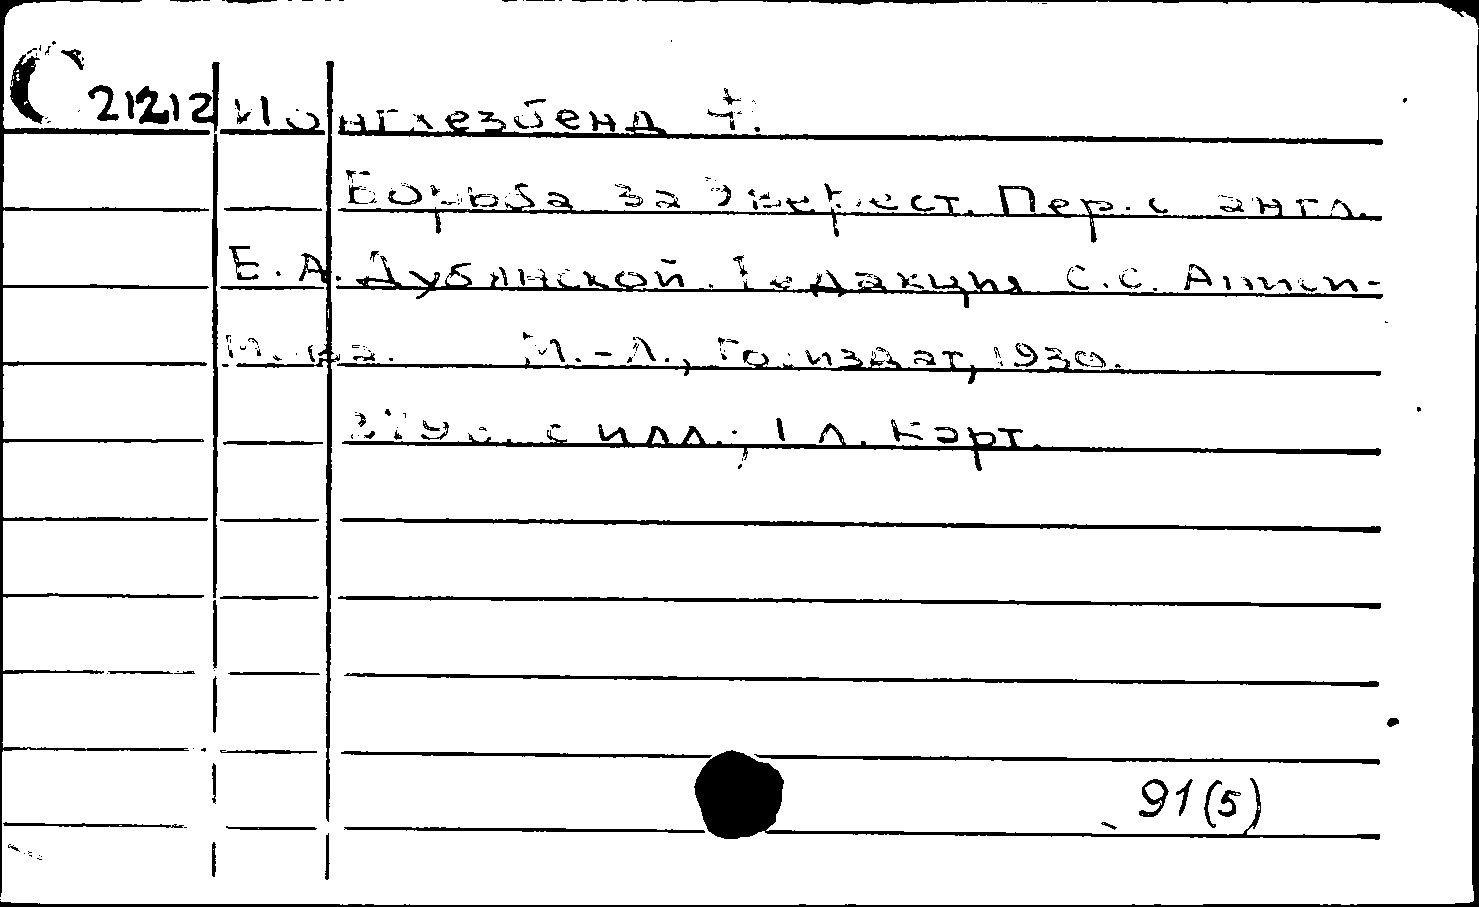 С 21212 Йонгхезбенд Ф.
Борьба за Эверест. Пер. с англ.
Е. А. Дубянской. Редакция С. С. Аниси-
М.-Л., Госиздат, 1930.
279 с. с илл.; 1 л. карт.
91(5)